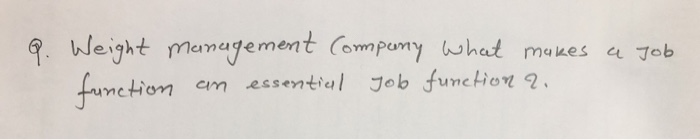 Q. Weight management Company What makes a Job
function an essential Job function?.